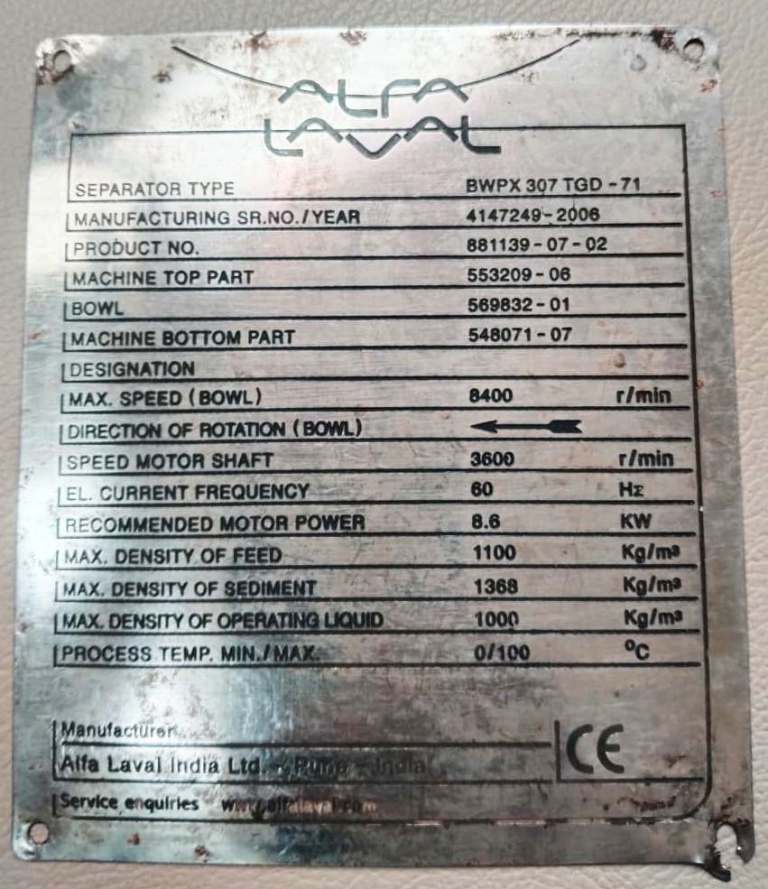 ALFA
LAVAL
SEPARATOR TYPE BWPX 307 TGD - 71
MANUFACTURING SR.NO./YEAR 4147249 - 2006
PRODUCT NO. 881139 - 07 - 02
MACHINE TOP PART 553209 - 06
BOWL 569832 - 01
MACHINE BOTTOM PART 548071 - 07
DESIGNATION
MAX. SPEED (BOWL) 8400 r/min
DIRECTION OF ROTATION (BOWL)
SPEED MOTOR SHAFT 3600 r/min
EL. CURRENT FREQUENCY 60 Hz
RECOMMENDED MOTOR POWER 8.6 KW
MAX. DENSITY OF FEED 1100 Kg/m³
MAX. DENSITY OF SEDIMENT 1368 Kg/m³
MAX. DENSITY OF OPERATING LIQUID 1000 Kg/m³
PROCESS TEMP. MIN./MAX. 0/100 ⁰C
Manufacturer
CE
Alfa Laval India Ltd. - Pune - India
Service enquiries www.alfalaval.com